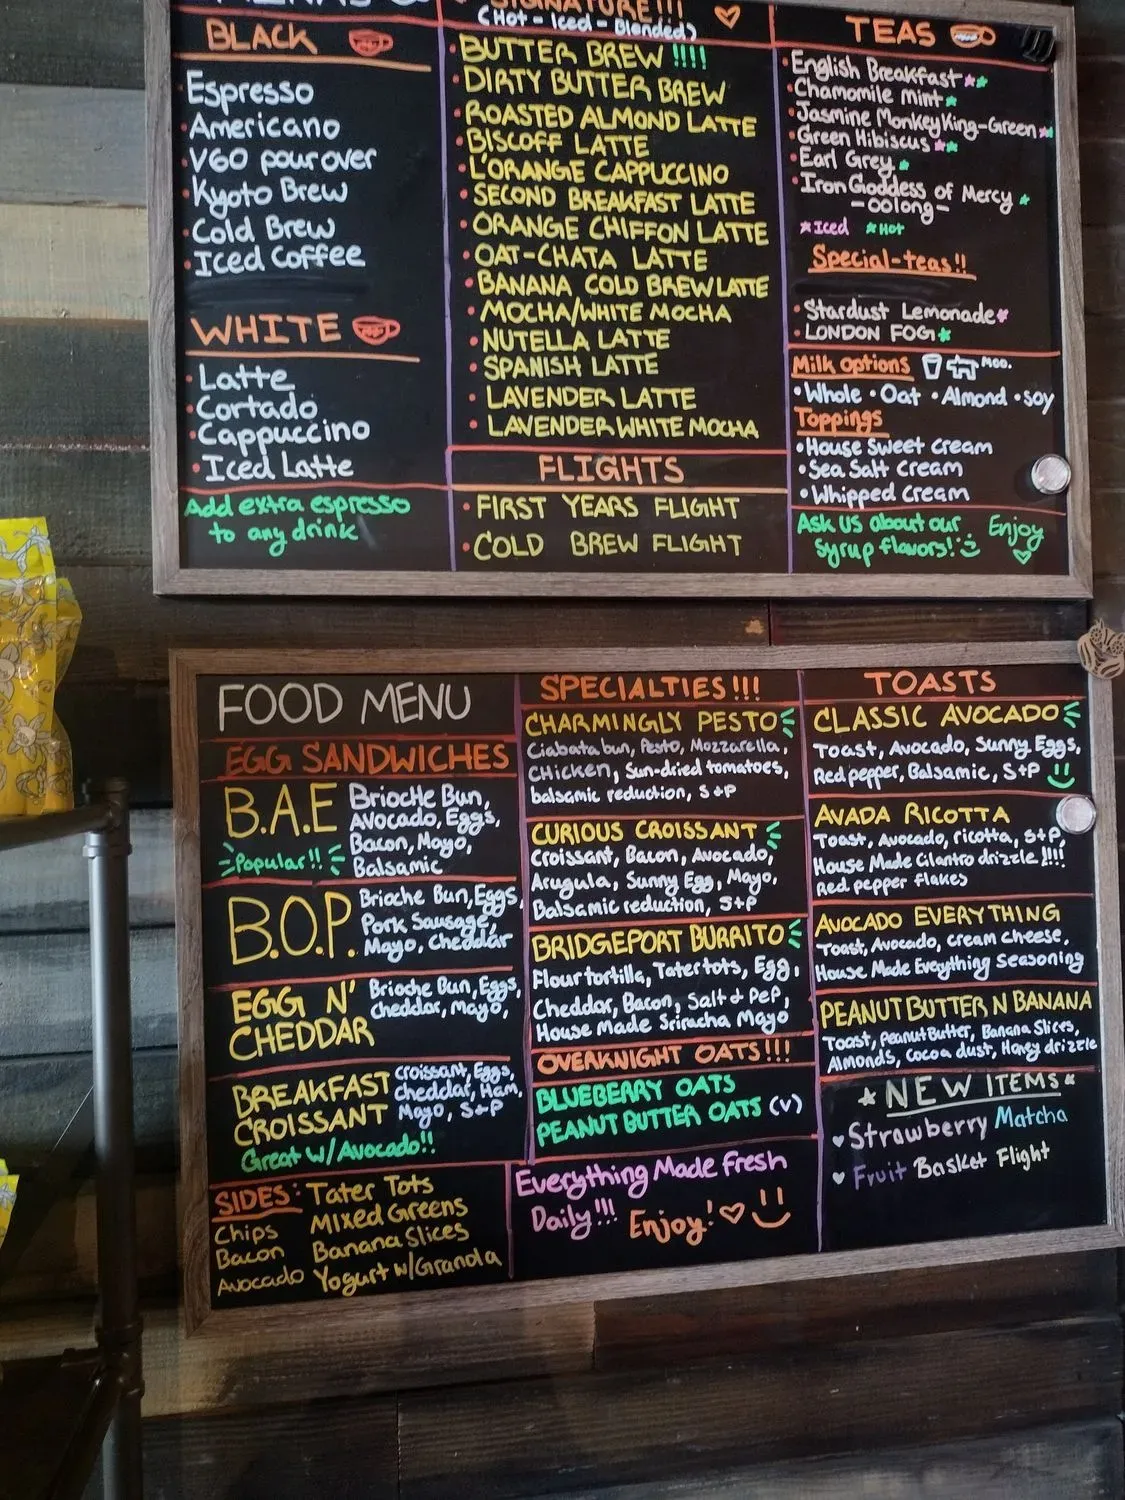 SIGNATURE!!!
(Hot - Iced - Blended)
BLACK
Espresso
Americano
V60 pour over
Kyoto Brew
Cold Brew
Iced Coffee
WHITE
Latte
Cortado
Cappuccino
Iced Latte
Add extra espresso
to any drink
BUTTER BREW !!!!
DIRTY BUTTER BREW
ROASTED ALMOND LATTE
BISCOFF LATTE
L'ORANGE CAPPUCCINO
SECOND BREAKFAST LATTE
ORANGE CHIFFON LATTE
OAT-CHATA LATTE
BANANA COLD BREW LATTE
MOCHA/WHITE MOCHA
NUTELLA LATTE
SPANISH LATTE
LAVENDER LATTE
LAVENDER WHITE MOCHA
FLIGHTS
FIRST YEARS FLIGHT
COLD BREW FLIGHT
TEAS
English Breakfast
Chamomile Mint
Jasmine Monkey King-Green
Green Hibiscus
Earl Grey
Iron Goddess of Mercy
-oolong-
Iced Hot
Special-teas!!
Stardust Lemonade
LONDON FOG
Milk options Moo.
•Whole •Oat •Almond •soy
Toppings
•House Sweet Cream
•Sea Salt Cream
•Whipped Cream
Ask us about our
syrup flavors!
Enjoy
FOOD MENU
EGG SANDWICHES
B.A.E
Popular!!
Brioche Bun,
Avocado, Eggs,
Bacon, Mayo,
Balsamic
B.O.P.
Brioche Bun, Eggs,
Pork Sausage,
Mayo, Cheddar
EGG N'
CHEDDAR
Brioche Bun, Eggs,
Cheddar, Mayo,
BREAKFAST
CROISSANT
Croissant, Eggs,
Cheddar, Ham,
Mayo, S+P
Great w/Avocado!!
SIDES: Tater Tots
Chips Mixed Greens
Bacon Banana Slices
Avocado Yogurt w/Granola
SPECIALTIES!!!
CHARMINGLY PESTO
Ciabata bun, Pesto, Mozzarella,
Chicken, Sun-dried tomatoes,
balsamic reduction, S+P
CURIOUS CROISSANT
Croissant, Bacon, Avocado,
Arugula, Sunny Egg, Mayo,
Balsamic reduction, S+P
BRIDGEPORT BURRITO
Flour tortilla, Tater tots, Egg,
Cheddar, Bacon, Salt + Pep,
House Made Sriracha Mayo
OVERKNIGHT OATS!!!
BLUEBERRY OATS
PEANUT BUTTER OATS (V)
Everything Made Fresh
Daily!!! Enjoy!
TOASTS
CLASSIC AVOCADO
Toast, Avocado, Sunny Eggs,
Red pepper, Balsamic, S+P
AVADA RICOTTA
Toast, Avocado, ricotta, S+P,
House Made Cilantro drizzle!!!!
Red pepper flakes
AVOCADO EVERYTHING
Toast, Avocado, Cream Cheese,
House Made Everything Seasoning
PEANUT BUTTER N BANANA
Toast, Peanut Butter, Banana Slices,
Almonds, Cocoa dust, Honey drizzle
NEW ITEMS
Strawberry Matcha
Fruit Basket Flight